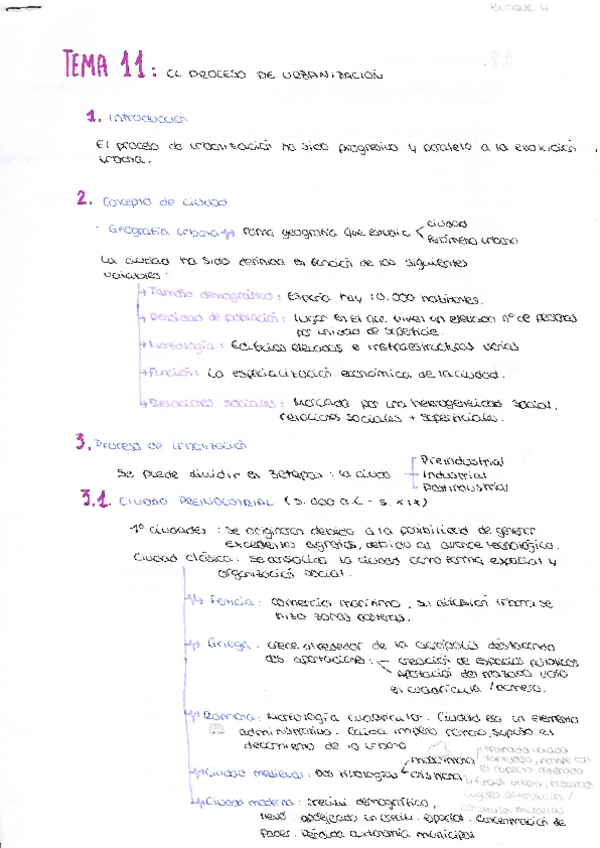 BLOQUE 4
TEMA 11: EL PROCESO DE URBANIZACIÓN
1. Introducción
El proceso de urbanización ha sido progresivo y paralelo a la evolución
urbana.
2. Concepto de ciudad
· Geografía urbana → rama geografía que estudia < ciudad
fenómeno urbano
La ciudad ha sido definida en función de los siguientes
variables:
→ Tamaño demográfico: España hay 10.000 habitantes.
→ Densidad de población: Lugar en el que viven un elevado nº de personas
por unidad de superficie.
→ Morfología: Edificios elevados e instraestructuras varias
→ Función: La especialización económica de la ciudad.
→ Relaciones sociales: Marcada por una heterogeneidad social,
relaciones sociales + superficiales.
3. Proceso de urbanización
Se puede dividir en 3 etapas: la ciudad
Preindustrial
Industrial
Postindustrial
3.1. CIUDAD PREINDUSTRIAL (S. 000 a.C - S. XIX)
1º ciudades: se originaron debido a la posibilidad de generar
excedentes agrarios, debido au avance tecnológico.
Ciudad clásica: se consolida la ciudad como forma espacial y
organización social.
→ Fenicia: comercios marítimo, su difusión urbana se
hizo zonas costeras.
→ Griega: crece alrededor de la acrópolis destacando
dos aportaciones: creación de espacios públicos
aportación del trazado viario
en cuadrícula
→ Romana: Morfología cuadricular. Ciudad es un elemento
administrativo. Caída imperio romano, supuso el
decaimiento de lo urbano
→ Ciudad medieval: Dos tipologías < musulmana
cristiana
→ Ciudad moderna: crecim demográfico,
llevó aparejado un crecim. espacial. Concentración de
poder. Pérdida autonomía municipal